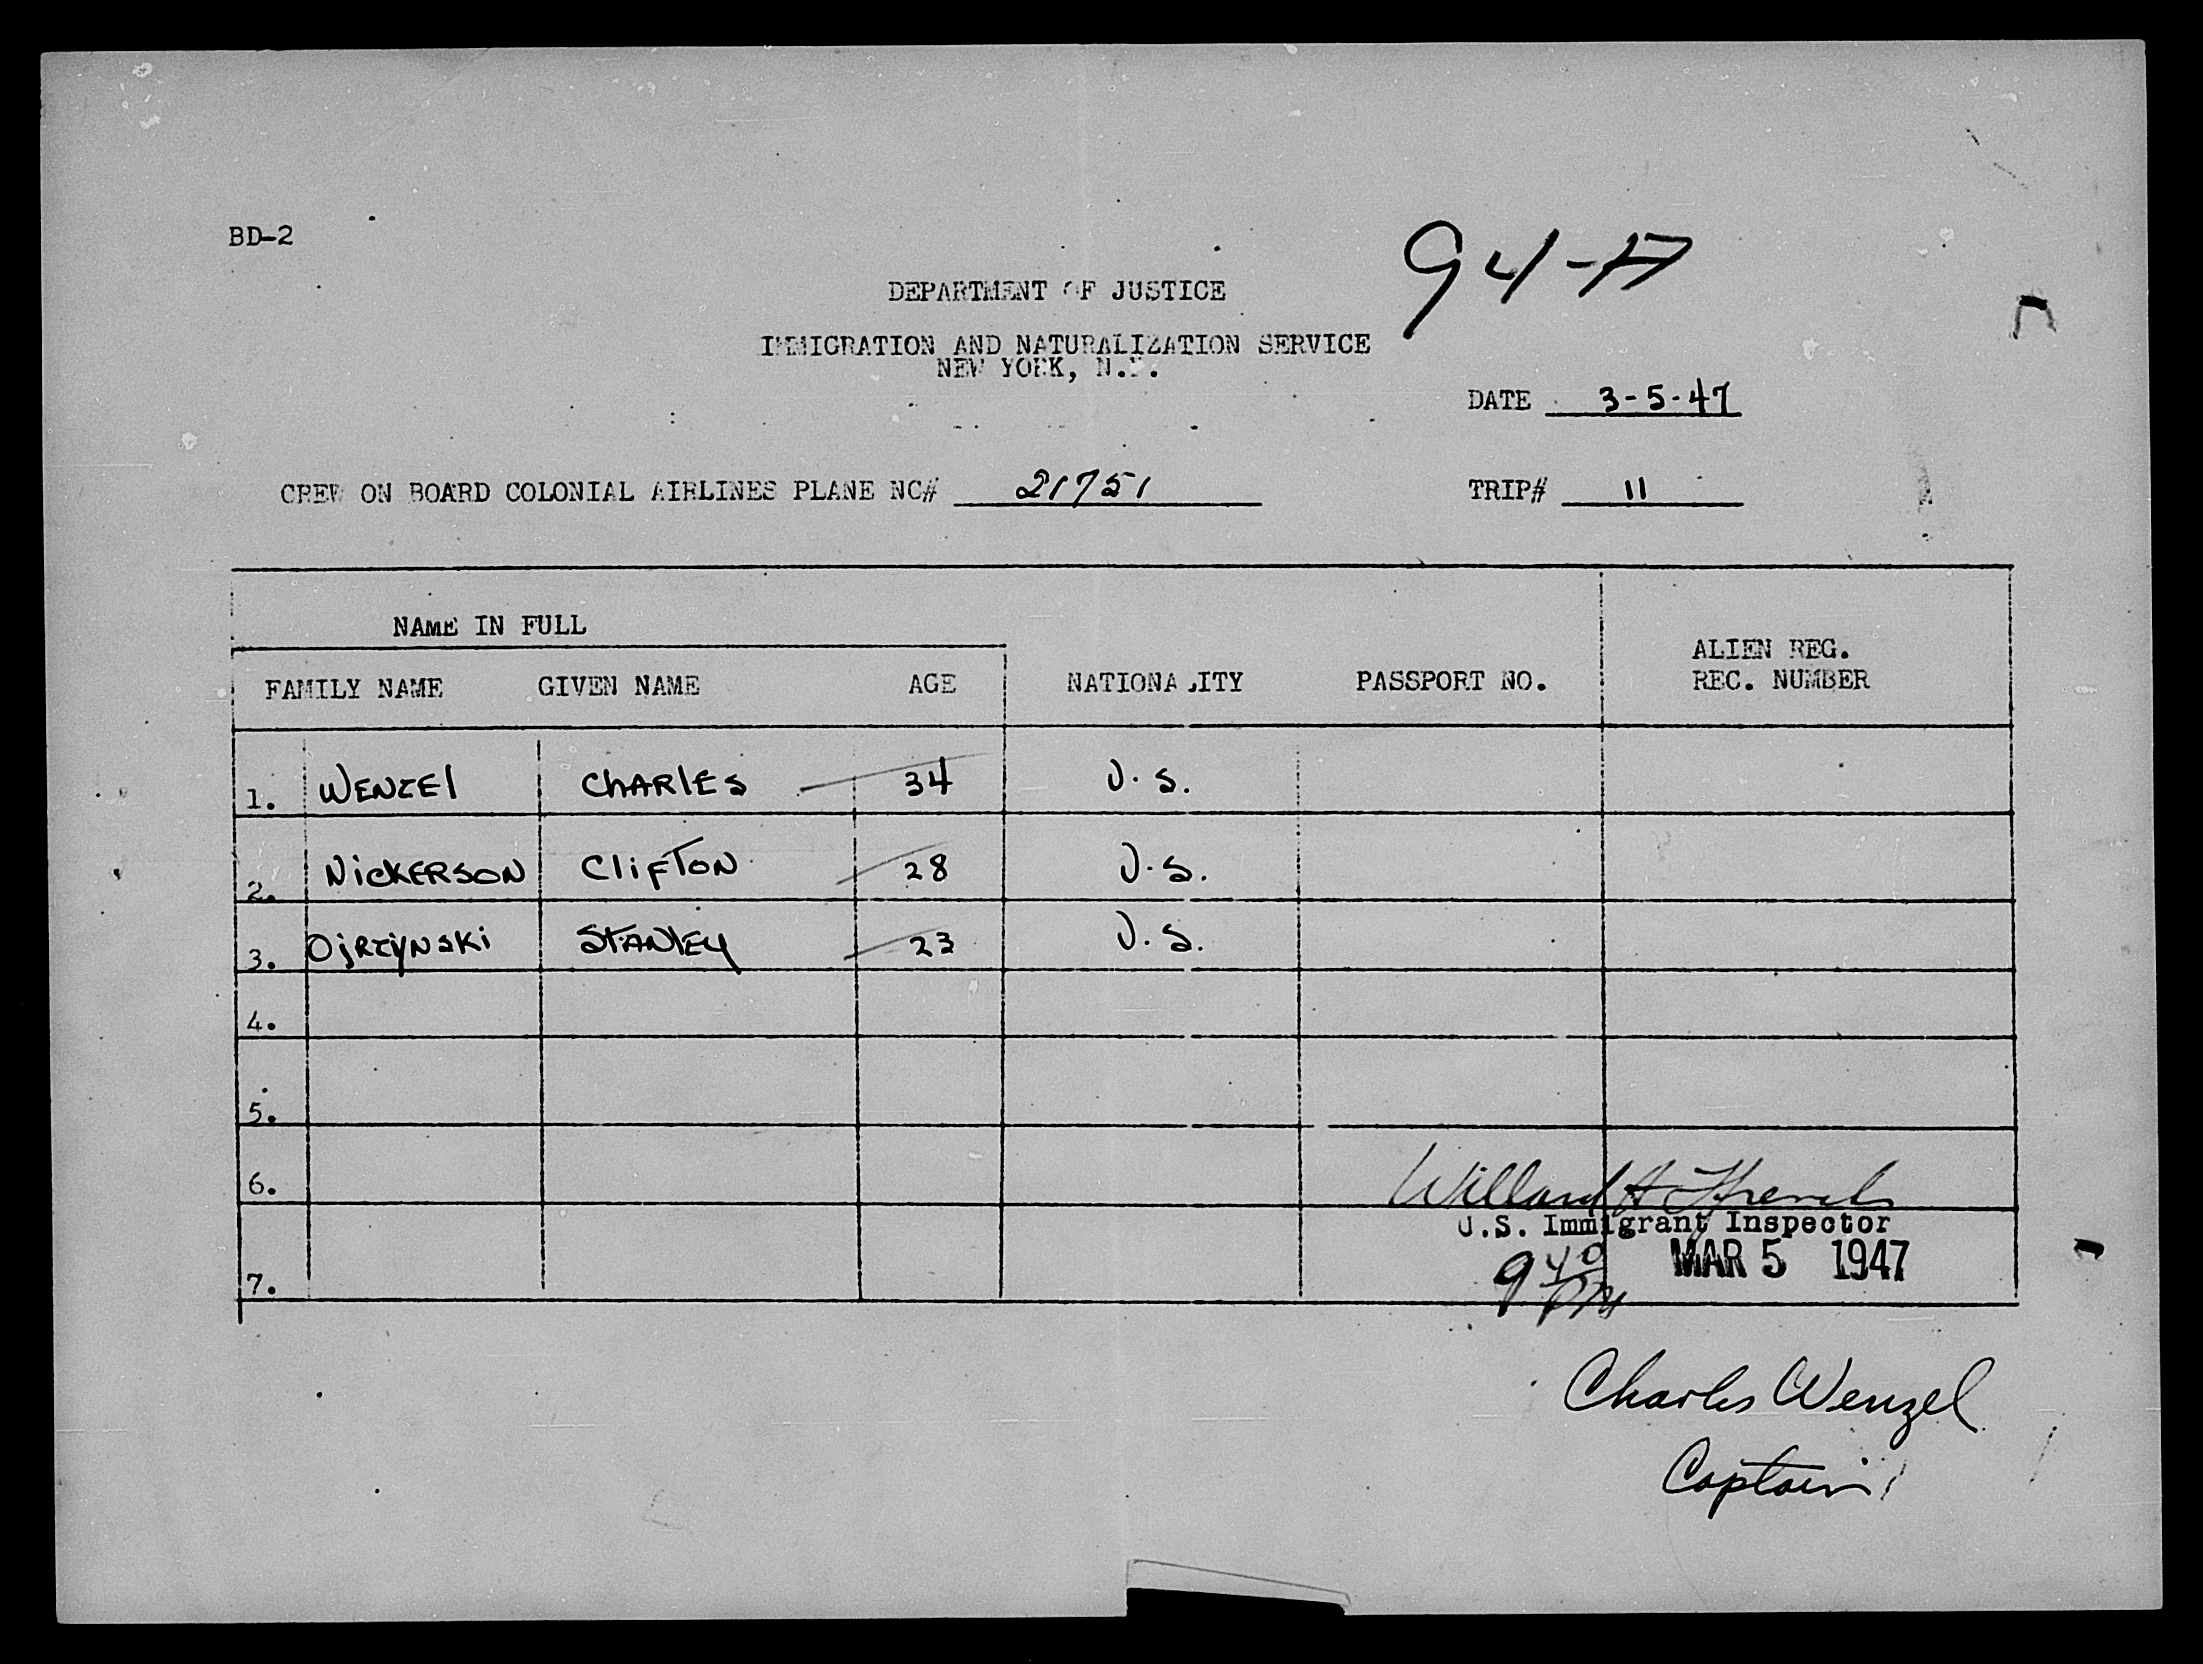 BD-2
94-A
DEPARTMENT OF JUSTICE
IMMIGRATION AND NATURALIZATION SERVICE
NEW YORK, N.Y.
DATE 3-5-47
CREW ON BOARD COLONIAL AIRLINES PLANE NC# 21751 TRIP# 11
NAME IN FULL
ALIEN REG.
FAMILY NAME GIVEN NAME AGE NATIONALITY PASSPORT NO. REC. NUMBER
1. WENZEl ChARlES 34 U.S.
2. NicKERSON CliFTON 28 U.S.
3. OjRzyNSKi STANlEy 23 U.S.
4.
5.
6. Willard H French
U.S. Immigrant Inspector
MAR 5 1947
7. 9 40 PM
Charles Wenzel
Captain